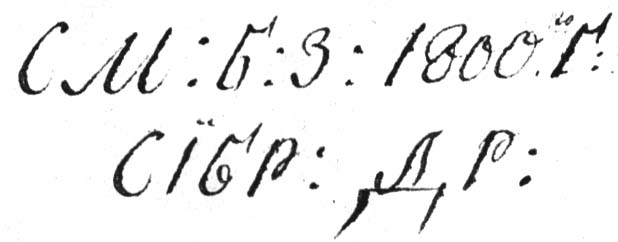 СМ: Б: З: 1800го Г:
СІБР: Д, Р: